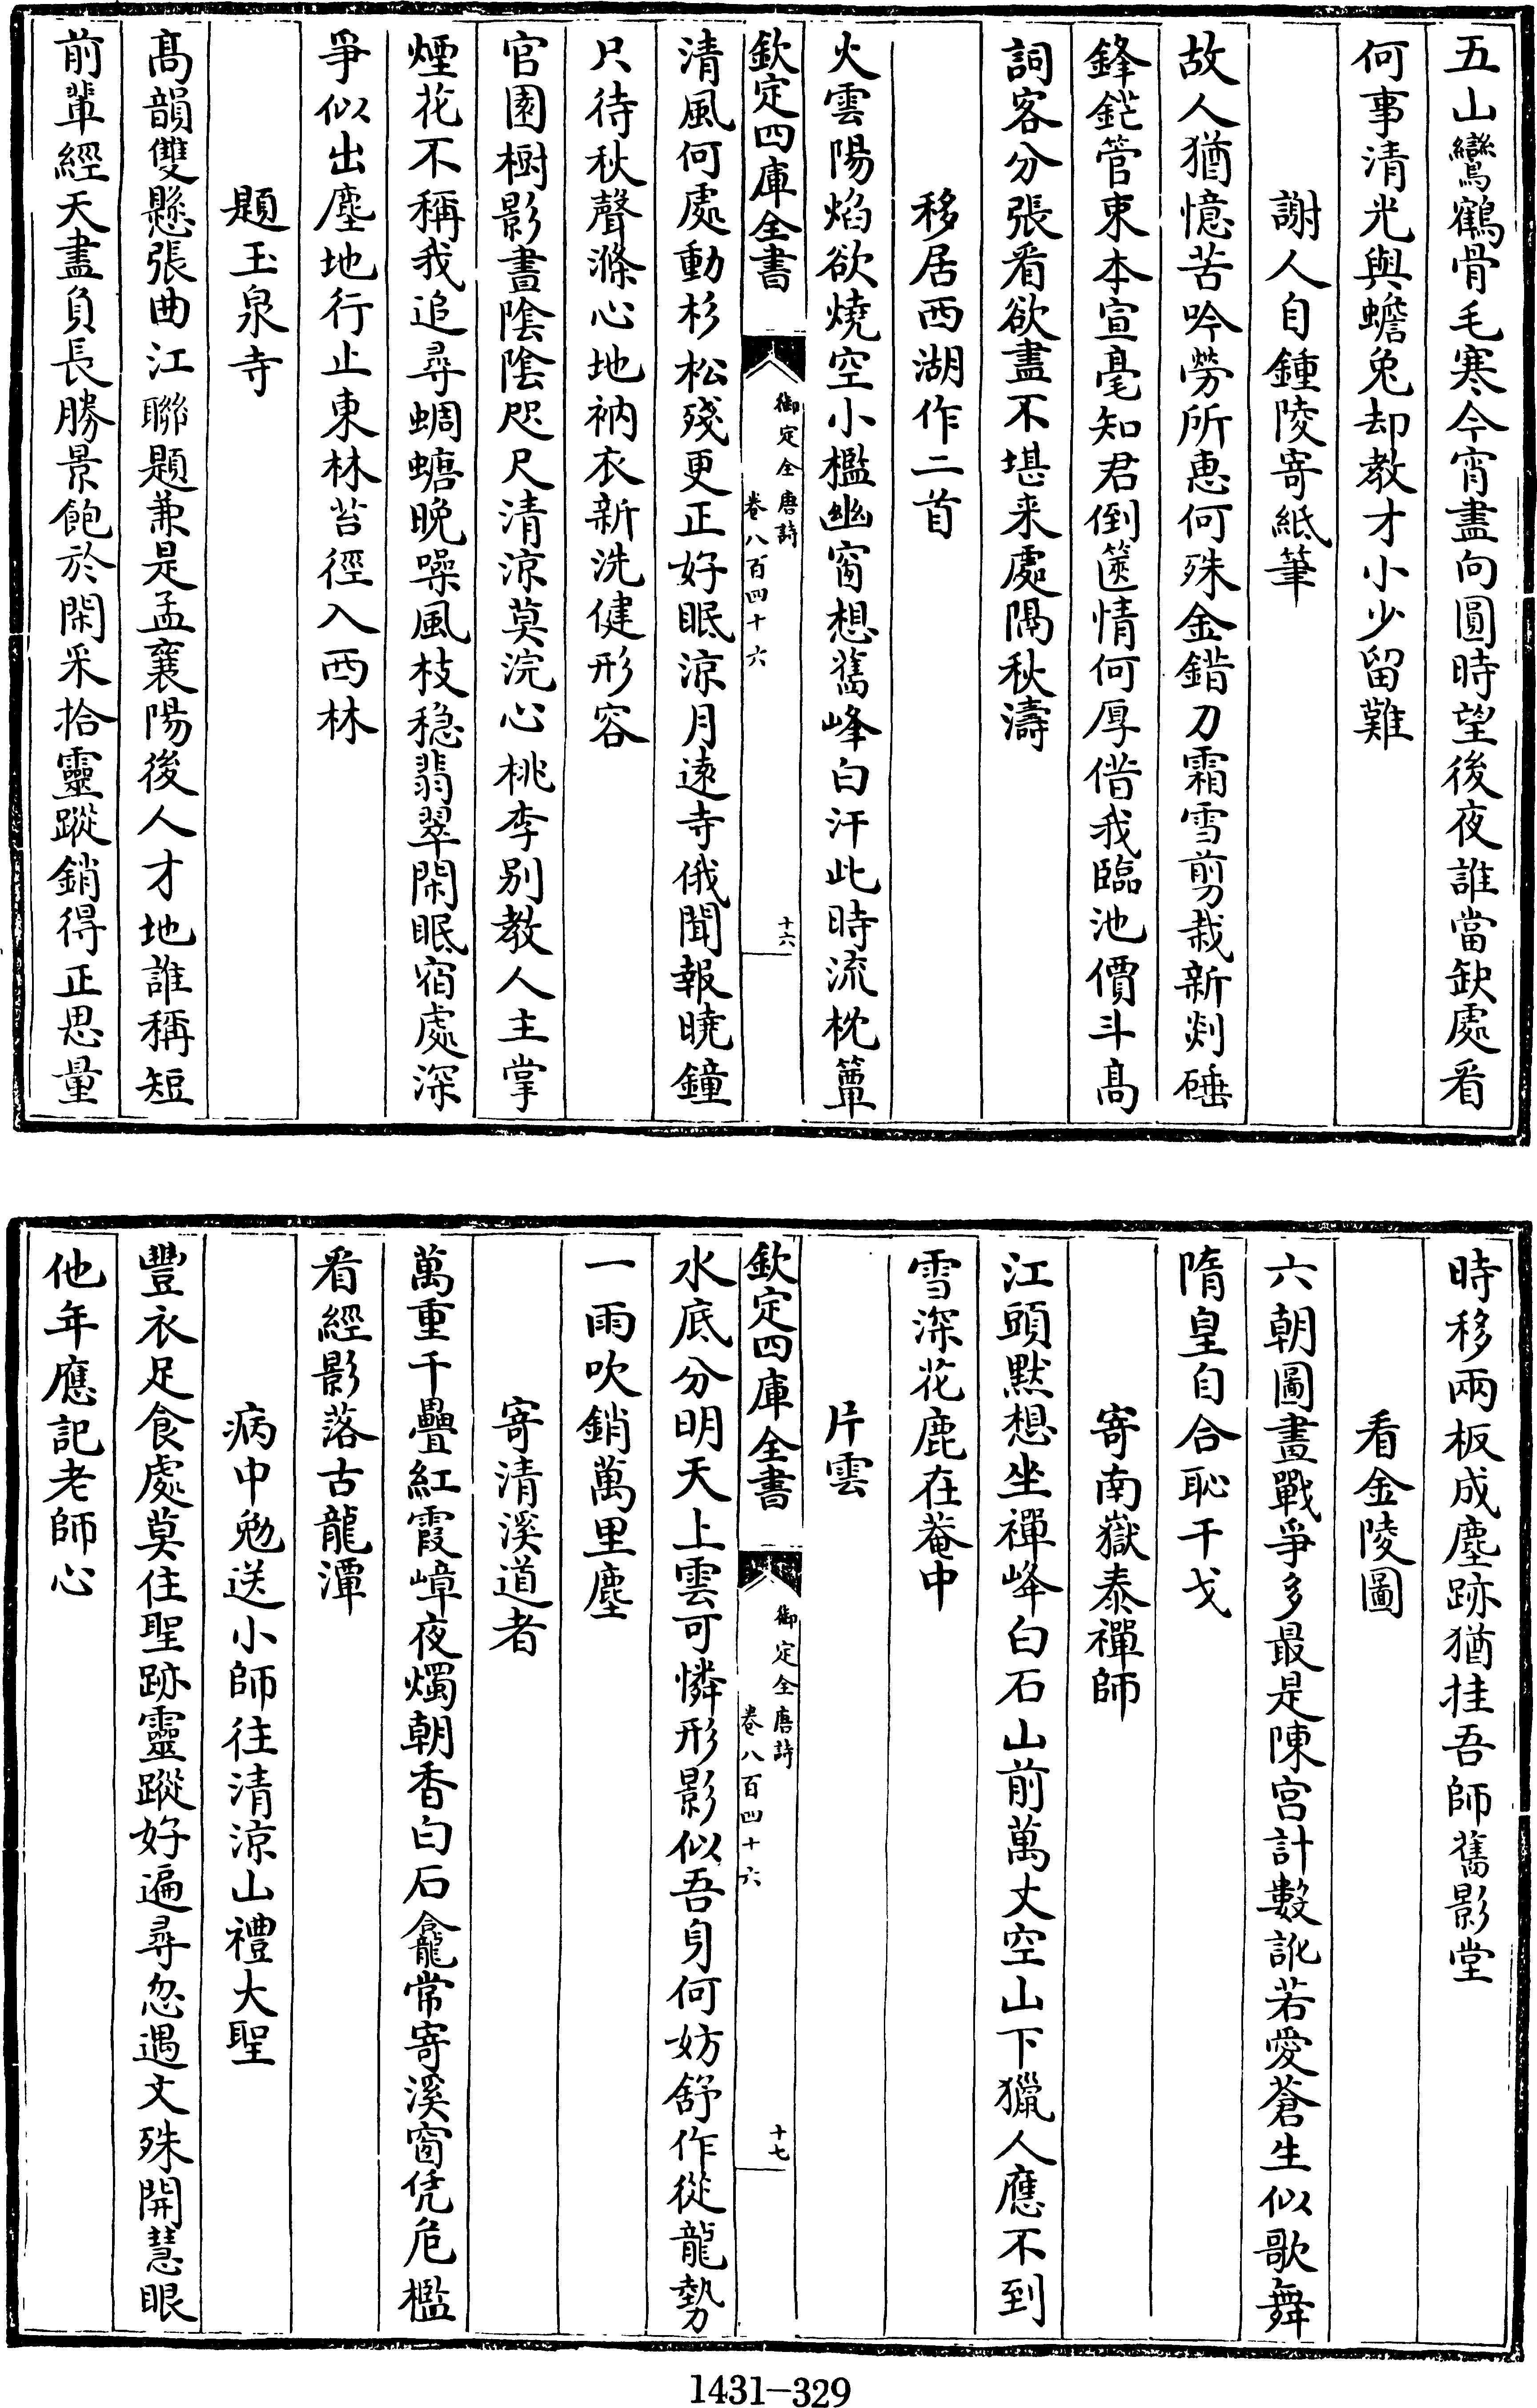 五山鸞鶴骨毛寒今宵盡向圓時望後夜誰當缺處看
何事清光與蟾兔却教才小少留難
謝人自鍾陵寄紙筆
故人猶憶苦吟勞所惠何殊金錯刀霜雪剪裁新剡硾
鋒鋩管束本宣毫知君倒篋情何厚借我臨池價斗高
詞客分張看欲盡不堪来處隔秋濤
移居西湖作二首
火雲陽焰欲燒空小檻幽窗想舊峰白汗此時流枕簟
欽定四庫全書
御定全唐詩
卷八百四十六
十六
清風何處動杉松殘更正好眠涼月遠寺俄聞報曉鐘
只待秋聲滌心地衲衣新洗健形容
官園樹影晝陰陰咫尺清涼莫浣心桃李别教人主掌
煙花不稱我追尋蜩螗晚噪風枝穏翡翠閑眠宿處深
爭似出塵地行止東林苔徑入西林
題玉泉寺
髙韻雙懸張曲江聯題兼是孟襄陽後人才地誰稱短
前輩經天盡負長勝景飽於閑采拾靈蹤銷得正思量
時移兩板成塵跡猶挂吾師舊影堂
看金陵圖
六朝圖畫戰爭多最是陳宫計數訛若愛蒼生似歌舞
隋皇自合恥干戈
寄南嶽泰禪師
江頭默想坐禪峰白石山前萬丈空山下獵人應不到
雪深花鹿在菴中
片雲
欽定四庫全書
御定全唐詩
卷八百四十六
十七
水底分明天上雲可憐形影似吾身何妨舒作從龍勢
一雨吹銷萬里塵
寄清溪道者
萬重千疊紅霞嶂夜燭朝香白石龕常寄溪窗凭危檻
看經影落古龍潭
病中勉送小師往清涼山禮大聖
豐衣足食處莫住聖跡靈蹤好遍尋忽遇文殊開慧眼
他年應記老師心
1431-329